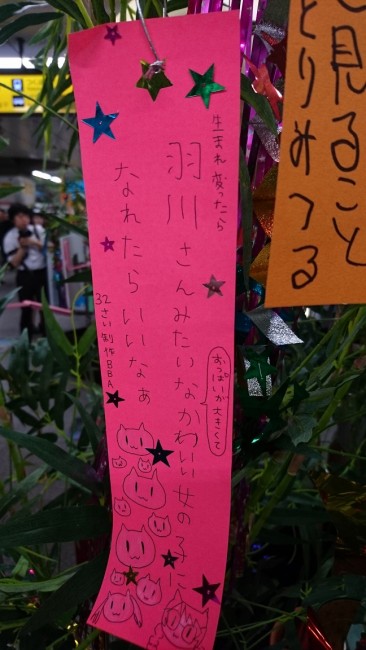 生まれ変ったら
羽川さんみたいなかわいい女の子に
おっぱいが大きくて
なれたらいいなぁ
32さい制作BBA
見ること
とりめつる